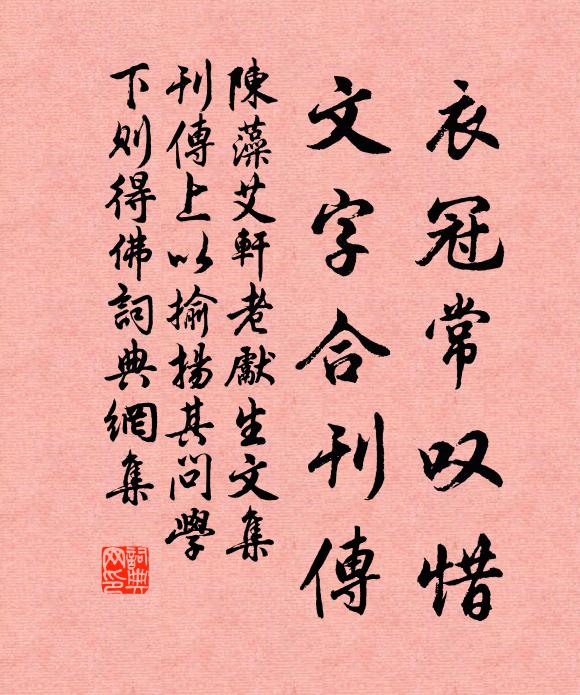 衣冠常叹惜
文字合刊傳
陳藻艾軒老獻生文集
刊傳上以揄揚其問學
下則得佛詞典網集
詞典
网印